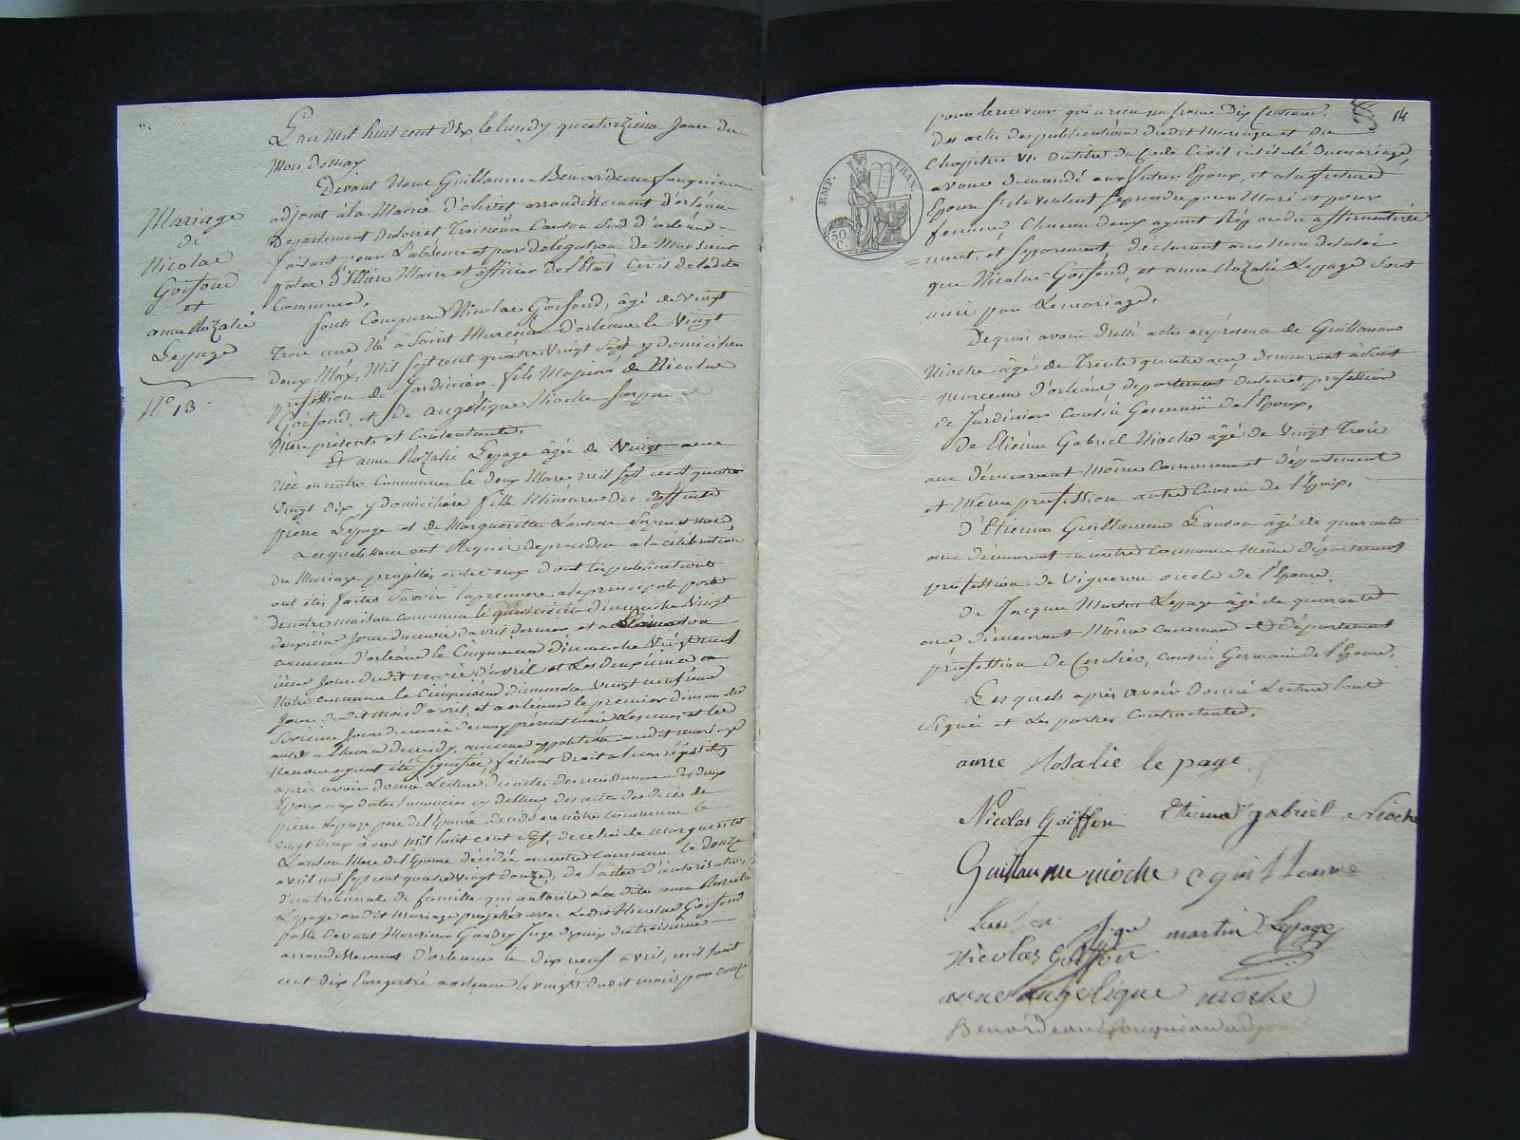 L'an mil huit cent dix le lundy quatorzieme Jour du
Mois de may
Devant Nous Guillaume Benardeau fouqueau
adjoint à la Mairie d'olivet arrondissement d'orléans
Departement du Loiret Troisieme Canton Sud d'orléans
faisant pour l'absence et par délégation de Monsieur
Maire et officier de l'État Civil de ladite
Commune.
Mariage
de
Nicolas
Goifond
et
anne Rozalie
Lepage
N° 13
Sont Comparus Nicolas Goifond, âgé de vingt
Trois ans Né à Saint Marceau d'orleans le Vingt
Deux May, Mil sept cent quatre Vingt sept y domicilier
profession de Jardinier, fils Majeur de Nicolas
Goifond, et de angelique Nioche ses pere et
Mere présents et Contentants.
Et anne Rozalie Lepage âgée de Vingt ans
Née en notre Commune le deux Mars, mil sept cent quatre
Vingt dix y domiciliée fille Mineure des deffunts
pierre Lepage et de Marguerite Lanson ses pere et mere,
Lesquels nous ont Requis de procéder a la célébration
du Mariage projetté entre eux dont les publications
ont été faites savoir la premiere a la principale porte
de notre maison commune le dimanche Vingt
deuxieme Jour du mois d'avril dernier et a
d'orléans le Cinquieme Dimanche Vingt neuf
ième Jour dudit mois d'avril et Les Deuxieme a
Notre commune le Cinquieme dimanche Vingt neufieme
Jour dudit mois d'avril, et a orleans le premier dimanche
Sixieme Jour du mois de may présent mois
a l'heure de midy, aucune opposition audit mariage
Ne nous ayant été signifiée, faisant Droit a leur réquisition
après avoir donné Lecture des actes de naissance des deux
Epoux aux dates énoncées cy dessus des actes de décès de
pierre Lepage pere de l'Epouse décédé en notre commune le
vingt deux mil huit cent sept, de celui de marguerite
Lanson Mere de l'Epouse décédée en notre commune le douze
avril mil sept cent quatre vingt douze, de l'acte d'autorisation
d'un tribunal de famille qui autorise La dite anne Rosalie
Lepage audit Mariage projetté avec Ledit Nicolas Goifond
passé Devant Monsieur Juge de paix du troisieme
arrondissement d'orleans le dix neuf avril, mil huit
cent dix Enregistré a orleans le vingt dudit mois
14
pour le receveur qui a reçu un franc Dix Centimes.
Des actes des publications dudit Mariage et du
Chapitre VI. du titre du Code Civil intitulé du mariage,
avons demandé aux futurs Epoux, et a la future
Epouse s'ils veulent se prendre pour Mari et pour
femme, Chacun deux ayant Répondu affirmative
ment, et séparement, déclarons au Nom de la loi
que Nicolas Goifond, et anne Rozalie Lepage Sont
unis par le mariage.
De quoi avons Dressé acte en présence de Guillaume
Nioche âgé de Trente quatre ans, demeurant à Saint
marceau d'orléans département du Loiret profession
de Jardinier Cousin Germain de l'Epoux,
De Etienne Gabriel Nioche âgé de Vingt Trois
ans demeurant Même Commune et département
et Même profession autre Cousin de l'Epoux.
D'Etienne Guillaume Lanson âgé de quarante
ans demeurant en notre Commune Même département
profession de Vigneron oncle de l'Epouse.
De Jacques Martin Lepage âgé de quarante
ans demeurant Même Commune et département
profession de Cerclier, Cousin Germain de l'Epouse.
Lesquels après avoir donné Lecture sont
Signé et Les parties Contractantes.
EMP. FRAN.
50 C.
anne Rosalie le page
Nicolas Goiffon Etienne gabriel Nioche
Guillaume nioche e guillaume
Lanson Jque martin Lepage
Nicolas Goiffon
anne angelique nioche
Benardeau fouqueau adjoint